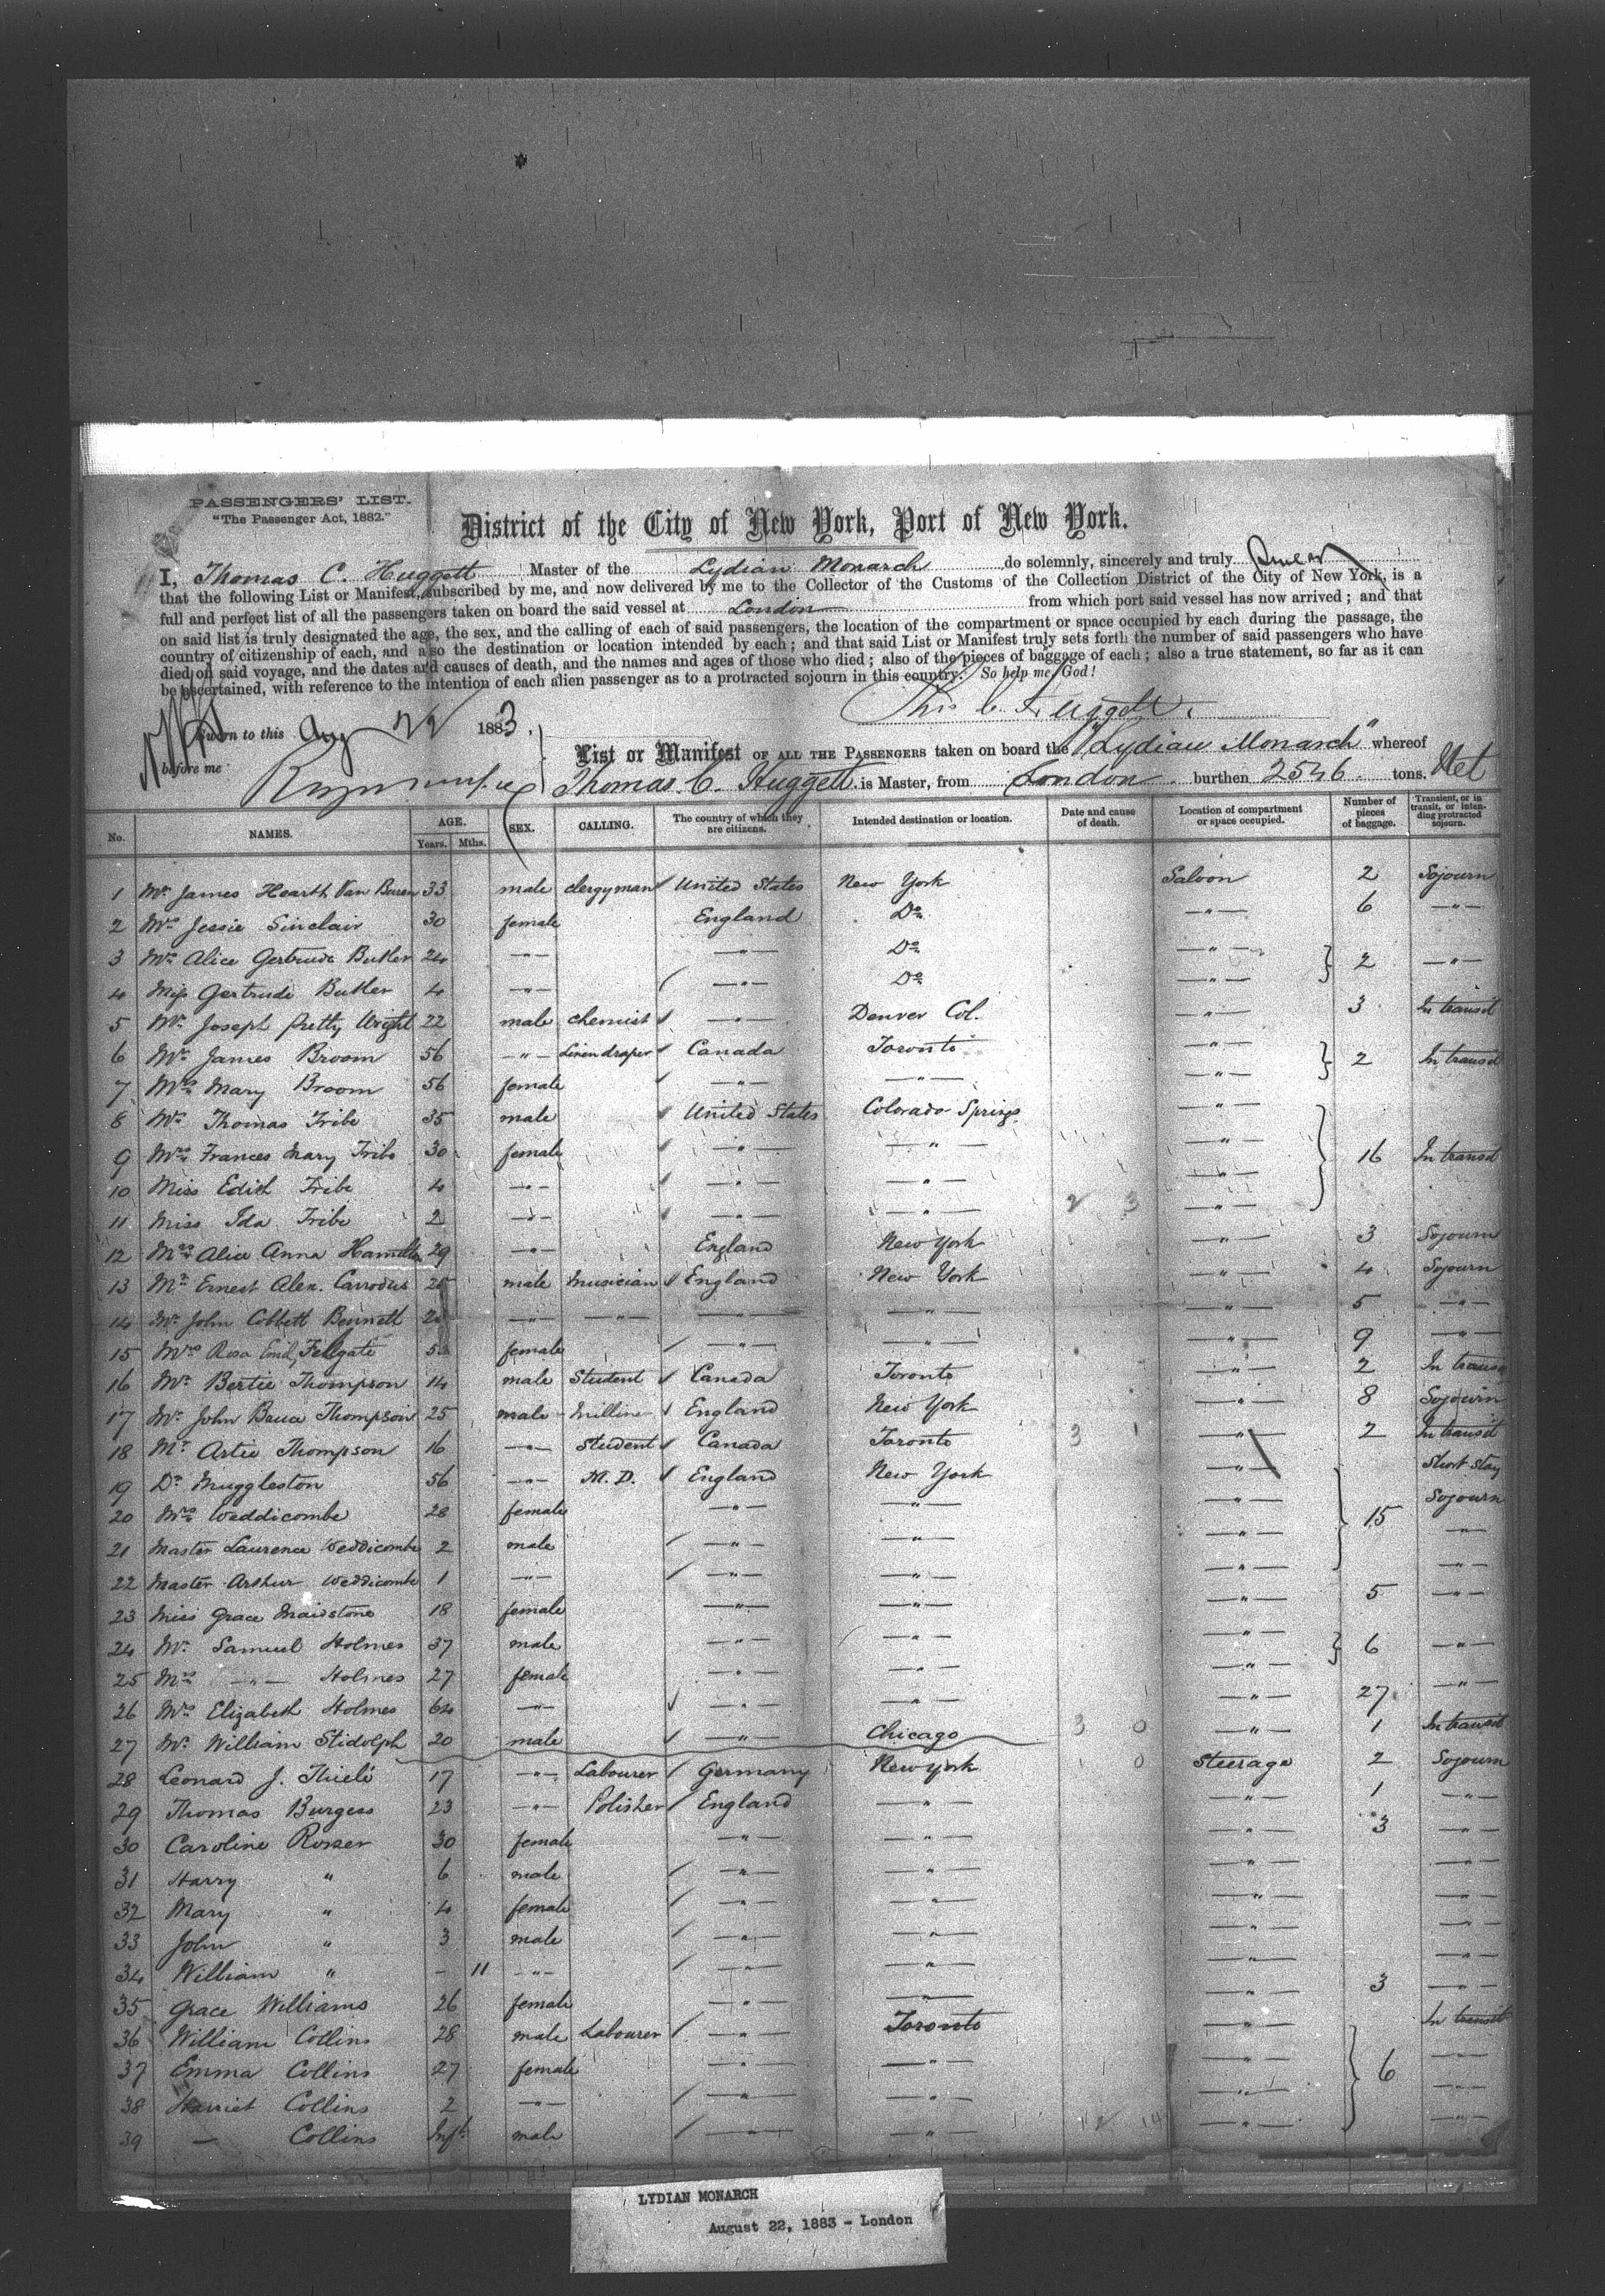 PASSENGERS' LIST.
"The Passenger Act, 1882."
District of the City of New York, Port of New York.
I, Thomas C. Huggett Master of the Lydian Monarch do solemnly, sincerely and truly swear
that the following List or Manifest, subscribed by me, and now delivered by me to the Collector of the Customs of the Collection District of the City of New York, is a
full and perfect list of all the passengers taken on board the said vessel at London from which port said vessel has now arrived; and that
on said list is truly designated the age, the sex, and the calling of each of said passengers, the location of the compartment or space occupied by each during the passage, the
country of citizenship of each, and also the destination or location intended by each; and that said List or Manifest truly sets forth the number of said passengers who have
died on said voyage, and the dates and causes of death, and the names and ages of those who died; also of the pieces of baggage of each; also a true statement, so far as it can
be ascertained, with reference to the intention of each alien passenger as to a protracted sojourn in this country. So help me God!
Thos C. Huggett.
Sworn to this Aug 22 1883
before me
List or Manifest OF ALL THE PASSENGERS taken on board the "Lydian Monarch" whereof
Thomas C. Huggett is Master, from London burthen 2546 tons. Net
No. NAMES. AGE. Years. Mths. SEX. CALLING. The country of which they are citizens. Intended destination or location. Date and cause of death. Location of compartment or space occupied. Number of pieces of baggage. Transient, or in transit, or intending protracted sojourn.
1 Mr James Hearth Van Buren 33 male clergyman United States New York Saloon 2 Sojourn
2 Mrs Jessie Sinclair 30 female England Do —"— 6 —"—
3 Mrs Alice Gertrude Butler 24 —"— —"— Do —"— 2 —"—
4 Miss Gertrude Butler 4 —"— —"— Do —"—
5 Mr Joseph Pretty Wright 22 male chemist —"— Denver Col. —"— 3 In transit
6 Mr James Broom 56 —"— Linen draper Canada Toronto —"— 2 In transit
7 Mrs Mary Broom 56 female —"— —"— —"—
8 Mr Thomas Tribe 35 male United States Colorado Springs —"—
9 Mrs Frances Mary Tribe 30 female —"— —"— —"— 16 In transit
10 Miss Edith Tribe 4 —"— —"— —"— —"—
11 Miss Ida Tribe 2 —"— —"— —"— 2 3 —"—
12 Mrs Alice Anna Hamilton 29 —"— England New York —"— 3 Sojourn
13 Mr Ernest Alex. Carrodus male musician England New York —"— 4 Sojourn
14 Mr John Cobbett Bennett —"— —"— —"— —"— —"— 5 —"—
15 Mrs Rosa Fellgate female —"— —"— —"— 9 —"—
16 Mr Bertie Thompson 14 male Student Canada Toronto —"— 2 In transit
17 Mr John Thompson 25 male England New York —"— 8 Sojourn
18 Mr Artie Thompson 16 —"— Student Canada Toronto 3 1 —"— 2 In transit
19 Dr Muggleston 56 —"— M.D. England New York —"— Short stay
20 Mrs Weddicombe 28 female —"— —"— —"— 15 Sojourn
21 Master Laurence Weddicombe 2 male —"— —"— —"— —"—
22 Master Arthur Weddicombe 1 —"— —"— —"— —"— —"—
23 Miss Grace Maidstone 18 female —"— —"— —"— 5 —"—
24 Mr Samuel Holmes 37 male —"— —"— —"— 6 —"—
25 Mrs —"— Holmes 27 female —"— —"— —"— —"—
26 Mrs Elizabeth Holmes 64 —"— —"— —"— —"— 27
27 Mr William Stidolph 20 male —"— Chicago 3 0 —"— 1 In transit
28 Leonard J. Thielé 17 —"— Labourer Germany New York 0 Steerage 2 Sojourn
29 Thomas Burgess 23 —"— Polisher England —"— —"— 1 —"—
30 Caroline Rosser 30 female —"— —"— —"— 3 —"—
31 Harry " 6 male —"— —"— —"— —"—
32 Mary " 4 female —"— —"— —"— —"—
33 John " 3 male —"— —"— —"— —"—
34 William " - 11 —"— —"— —"— —"— —"—
35 Grace Williams 26 female —"— —"— —"— 3 —"—
36 William Collins 28 male Labourer —"— Toronto —"— In transit
37 Emma Collins 27 female —"— —"— —"— 6 —"—
38 Harriet Collins 2 —"— —"— —"— —"— —"—
39 — Collins Inft. male —"— —"— 12 14 —"— —"—
LYDIAN MONARCH
August 22, 1883 - London